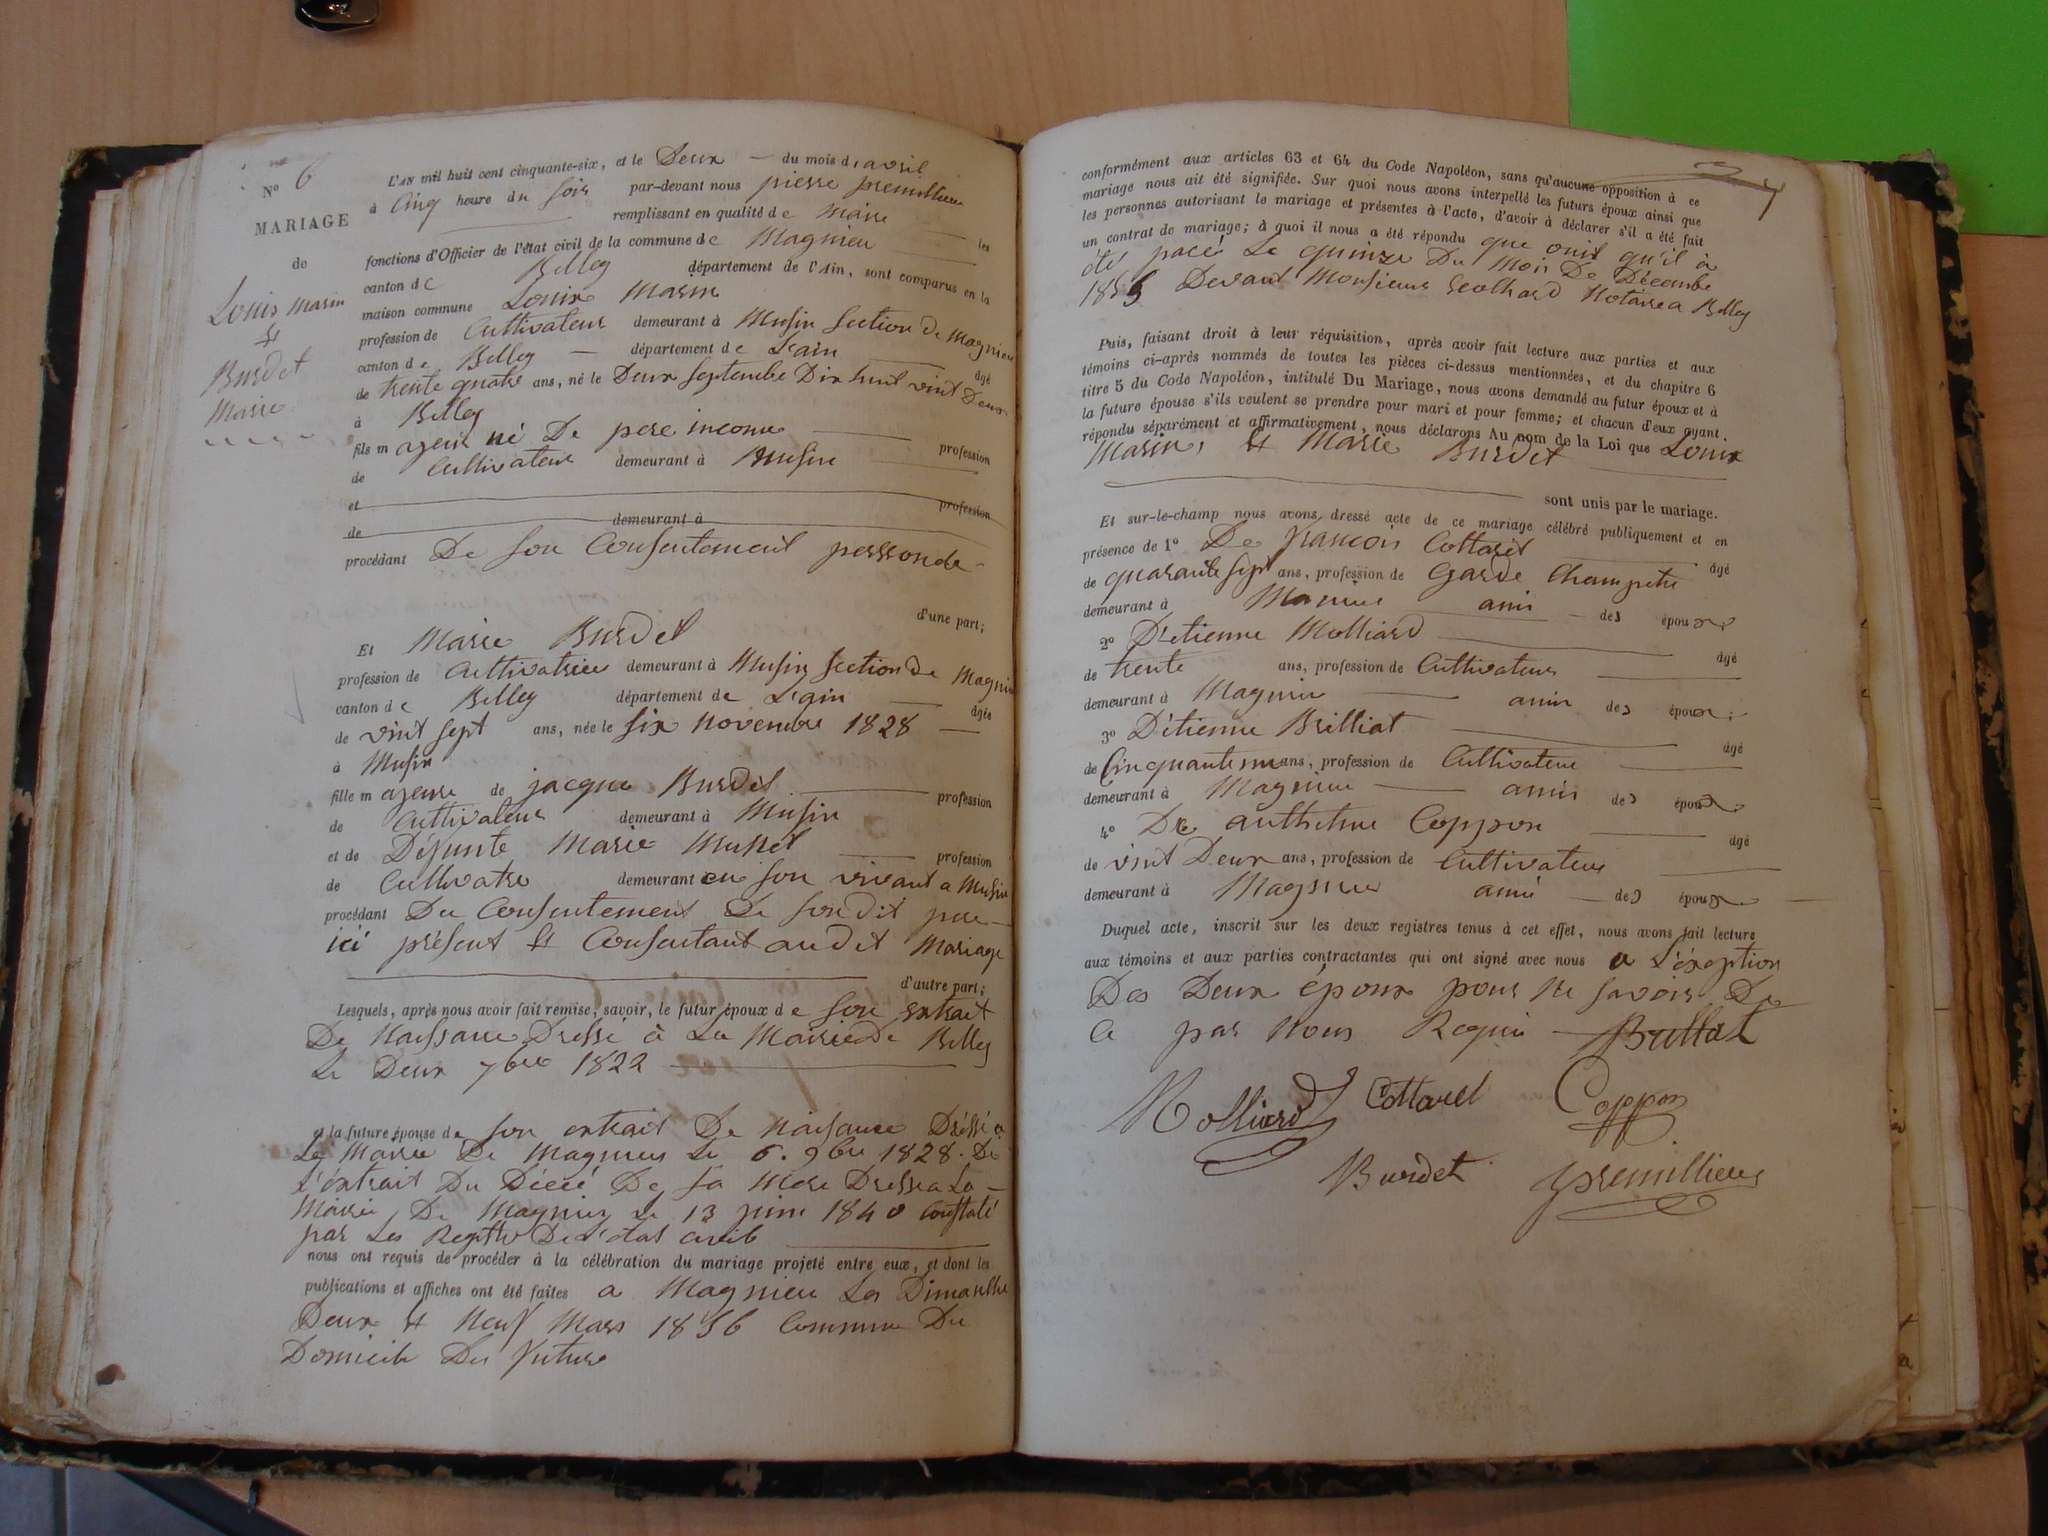 N° 6
MARIAGE
de
Louis Marin
et
Burdet
Marie
L'AN mil huit cent cinquante-six, et le Deux du mois d'avril
à Cinq heure du soir par-devant nous pierre premillieu
remplissant en qualité de Maire les
fonctions d'Officier de l'état civil de la commune de Magnieu
canton de Belley département de l'Ain, sont comparus en la
maison commune Louis Marin
profession de Cultivateur demeurant à Musin Section de Magnieu
canton de Belley département de L'ain âgé
de trente quatre ans, né le Deux Septembre Dix huit vint Deux
à Belley
fils majeur né De pere inconnu profession
de Cultivateur demeurant à Musin
et profession
de demeurant à
procédant De son Consentement
d'une part;
Et Marie Burdet
profession de Cultivatrice demeurant à Musin Section de Magnieu
canton de Belley département de L'ain âgée
de vint sept ans, née le six novembre 1828
à Musin
fille majeure de jacque Burdet profession
de Cultivateur demeurant à Musin
et de Defunte Marie Mussel profession
de Cultivatr demeurant en son vivant a Musin
procédant Du Consentement de son dit pere
ici présent et Consentant audit Mariage
d'autre part;
Lesquels, après nous avoir fait remise, savoir, le futur époux de son extrait
De Naissance Dressé à La Mairie de Belley
Le Deux 7bre 1822
et la future épouse de son extrait De Naisance Dréssé a
La Mairie De Magnieu Le 6. 9bre 1828. De
l'éxtrait Du Décé De sa Mere Dressé a La
Mairie De Magnieu le 13 juin 1840 Constaté
par Les Registre De L'état Civil
nous ont requis de procéder à la célébration du mariage projeté entre eux, et dont les
publications et affiches ont été faites a Magnieu Les Dimanche
Deux et Neuf Mars 1856 Commune Du
Domicile Des future
conformément aux articles 63 et 64 du Code Napoléon, sans qu'aucune opposition à ce
mariage nous ait été signifiée. Sur quoi nous avons interpellé les futurs époux ainsi que
les personnes autorisant le mariage et présentes à l'acte, d'avoir à déclarer s'il a été fait
un contrat de mariage; à quoi il nous a été répondu que ouit qu'il à
été pacé Le quinze Du Mois De Décembre
1855 Devant Monsieur Notaire a Belley
Puis, faisant droit à leur réquisition, après avoir fait lecture aux parties et aux
témoins ci-après nommés de toutes les pièces ci-dessus mentionnées, et du chapitre 6
titre 5 du Code Napoléon, intitulé Du Mariage, nous avons demandé au futur époux et à
la future épouse s'ils veulent se prendre pour mari et pour femme; et chacun d'eux ayant
répondu séparément et affirmativement, nous déclarons Au nom de la Loi que Louis
Marin, et Marie Burdet
sont unis par le mariage.
Et sur-le-champ nous avons dressé acte de ce mariage célébré publiquement et en
présence de 1° De francois Cottaret âgé
de quarante sept ans, profession de Garde Champetre
demeurant à Magnieu amis des époux
2° D'etienne Molliard âgé
de trente ans, profession de Cultivateur
demeurant à Magnieu amis des époux;
3° D'étienne Brilliat âgé
de Cinquante un ans, profession de Cultivateur
demeurant à Magnieu amis des époux
4° De anthelme Coppon âgé
de vint Deux ans, profession de Cultivateur
demeurant à Magnieu ami des époux
Duquel acte, inscrit sur les deux registres tenus à cet effet, nous avons fait lecture
aux témoins et aux parties contractantes qui ont signé avec nous a L'éxeption
Des Deux époux pour Ne savoir De
ce par Nous Requi Brillat
Molliard Cottarel Coppon
Burdet premillieu